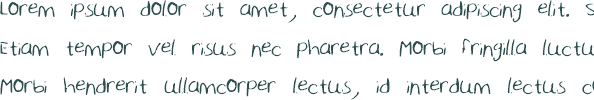 Lorem ipsum dolor sit amet, consectetur adipiscing elit.
Etiam tempor vel risus nec pharetra. Morbi fringilla
Morbi hendrerit ullamcorper lectus, id interdum lectus